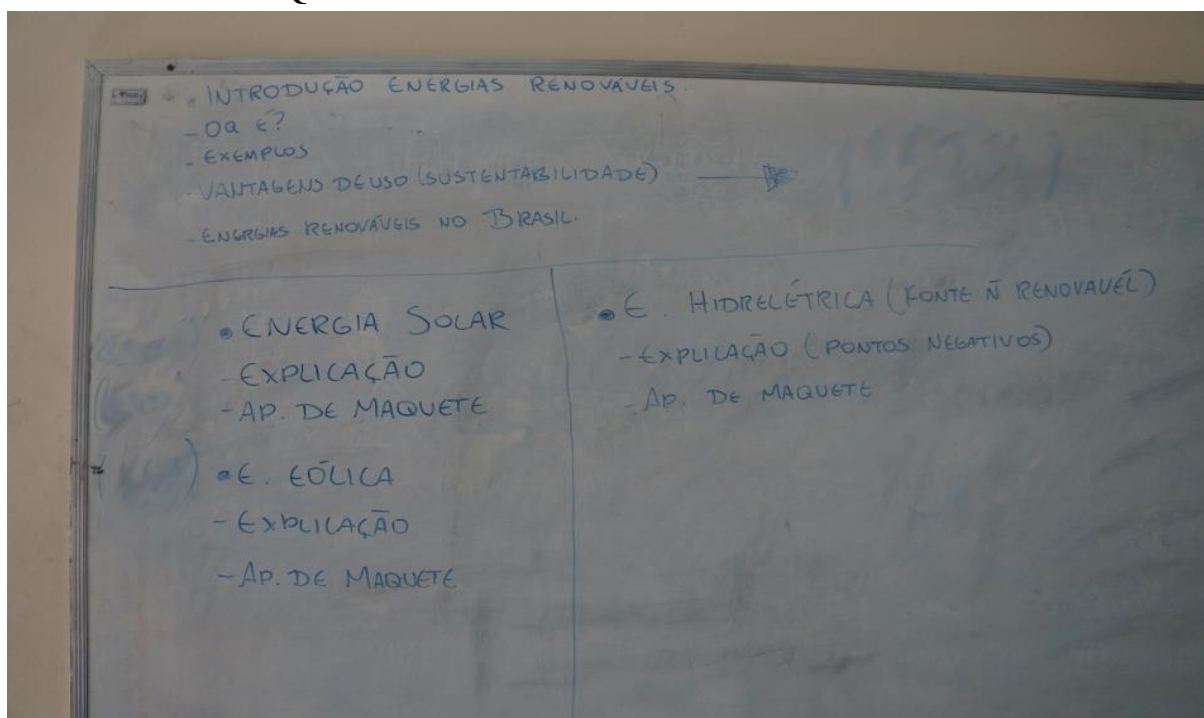 • INTRODUÇÃO ENERGIAS RENOVÁVEIS.
- OQ É?
- EXEMPLOS
- VANTAGENS DE USO (SUSTENTABILIDADE)
- ENERGIAS RENOVÁVEIS NO BRASIL.
• ENERGIA SOLAR
- EXPLICAÇÃO
- AP. DE MAQUETE
• E. EÓLICA
- EXPLICAÇÃO
- AP. DE MAQUETE
• E. HIDRELÉTRICA (FONTE Ñ RENOVAVÉL)
- EXPLICAÇÃO (PONTOS NEGATIVOS)
- AP. DE MAQUETE